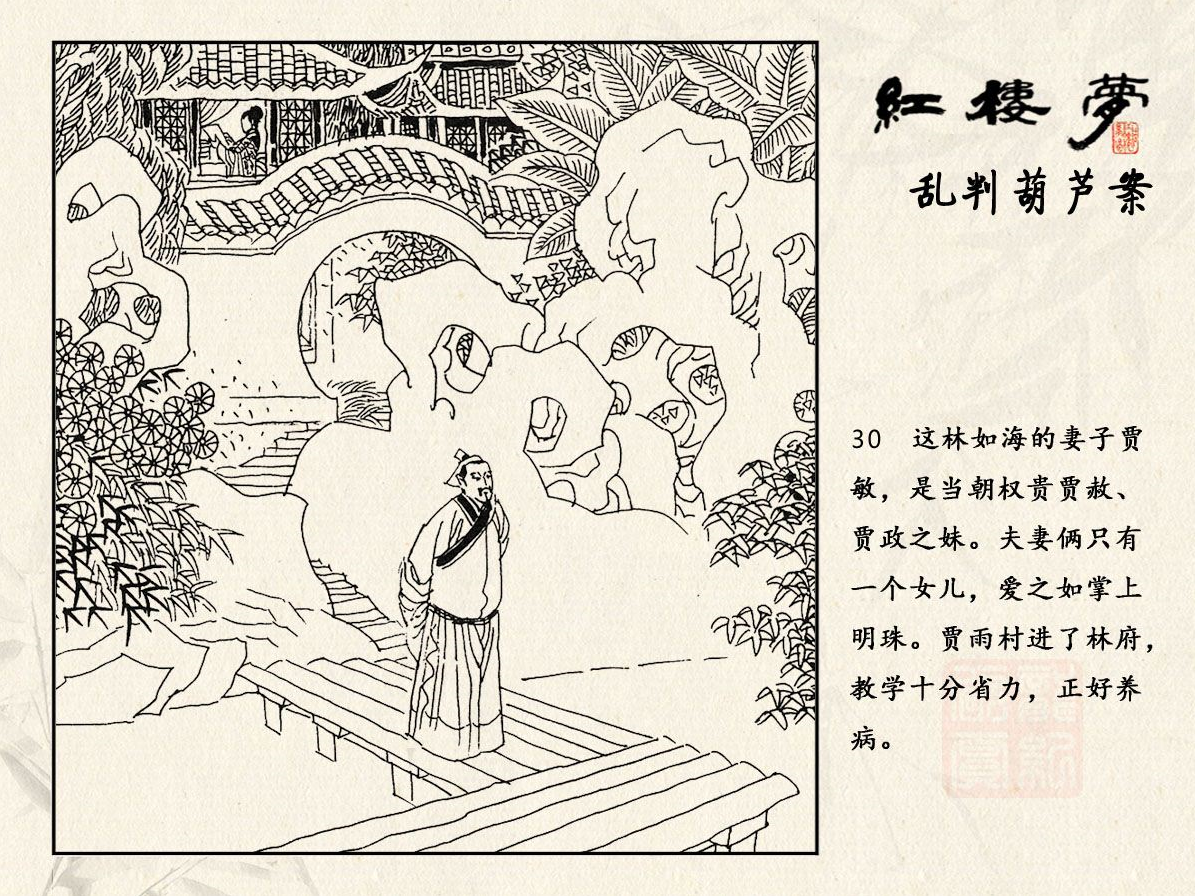 紅樓夢
乱判葫芦案
30 这林如海的妻子贾
敏，是当朝权贵贾赦、
贾政之妹。夫妻俩只有
一个女儿，爱之如掌上
明珠。贾雨村进了林府，
教学十分省力，正好养
病。